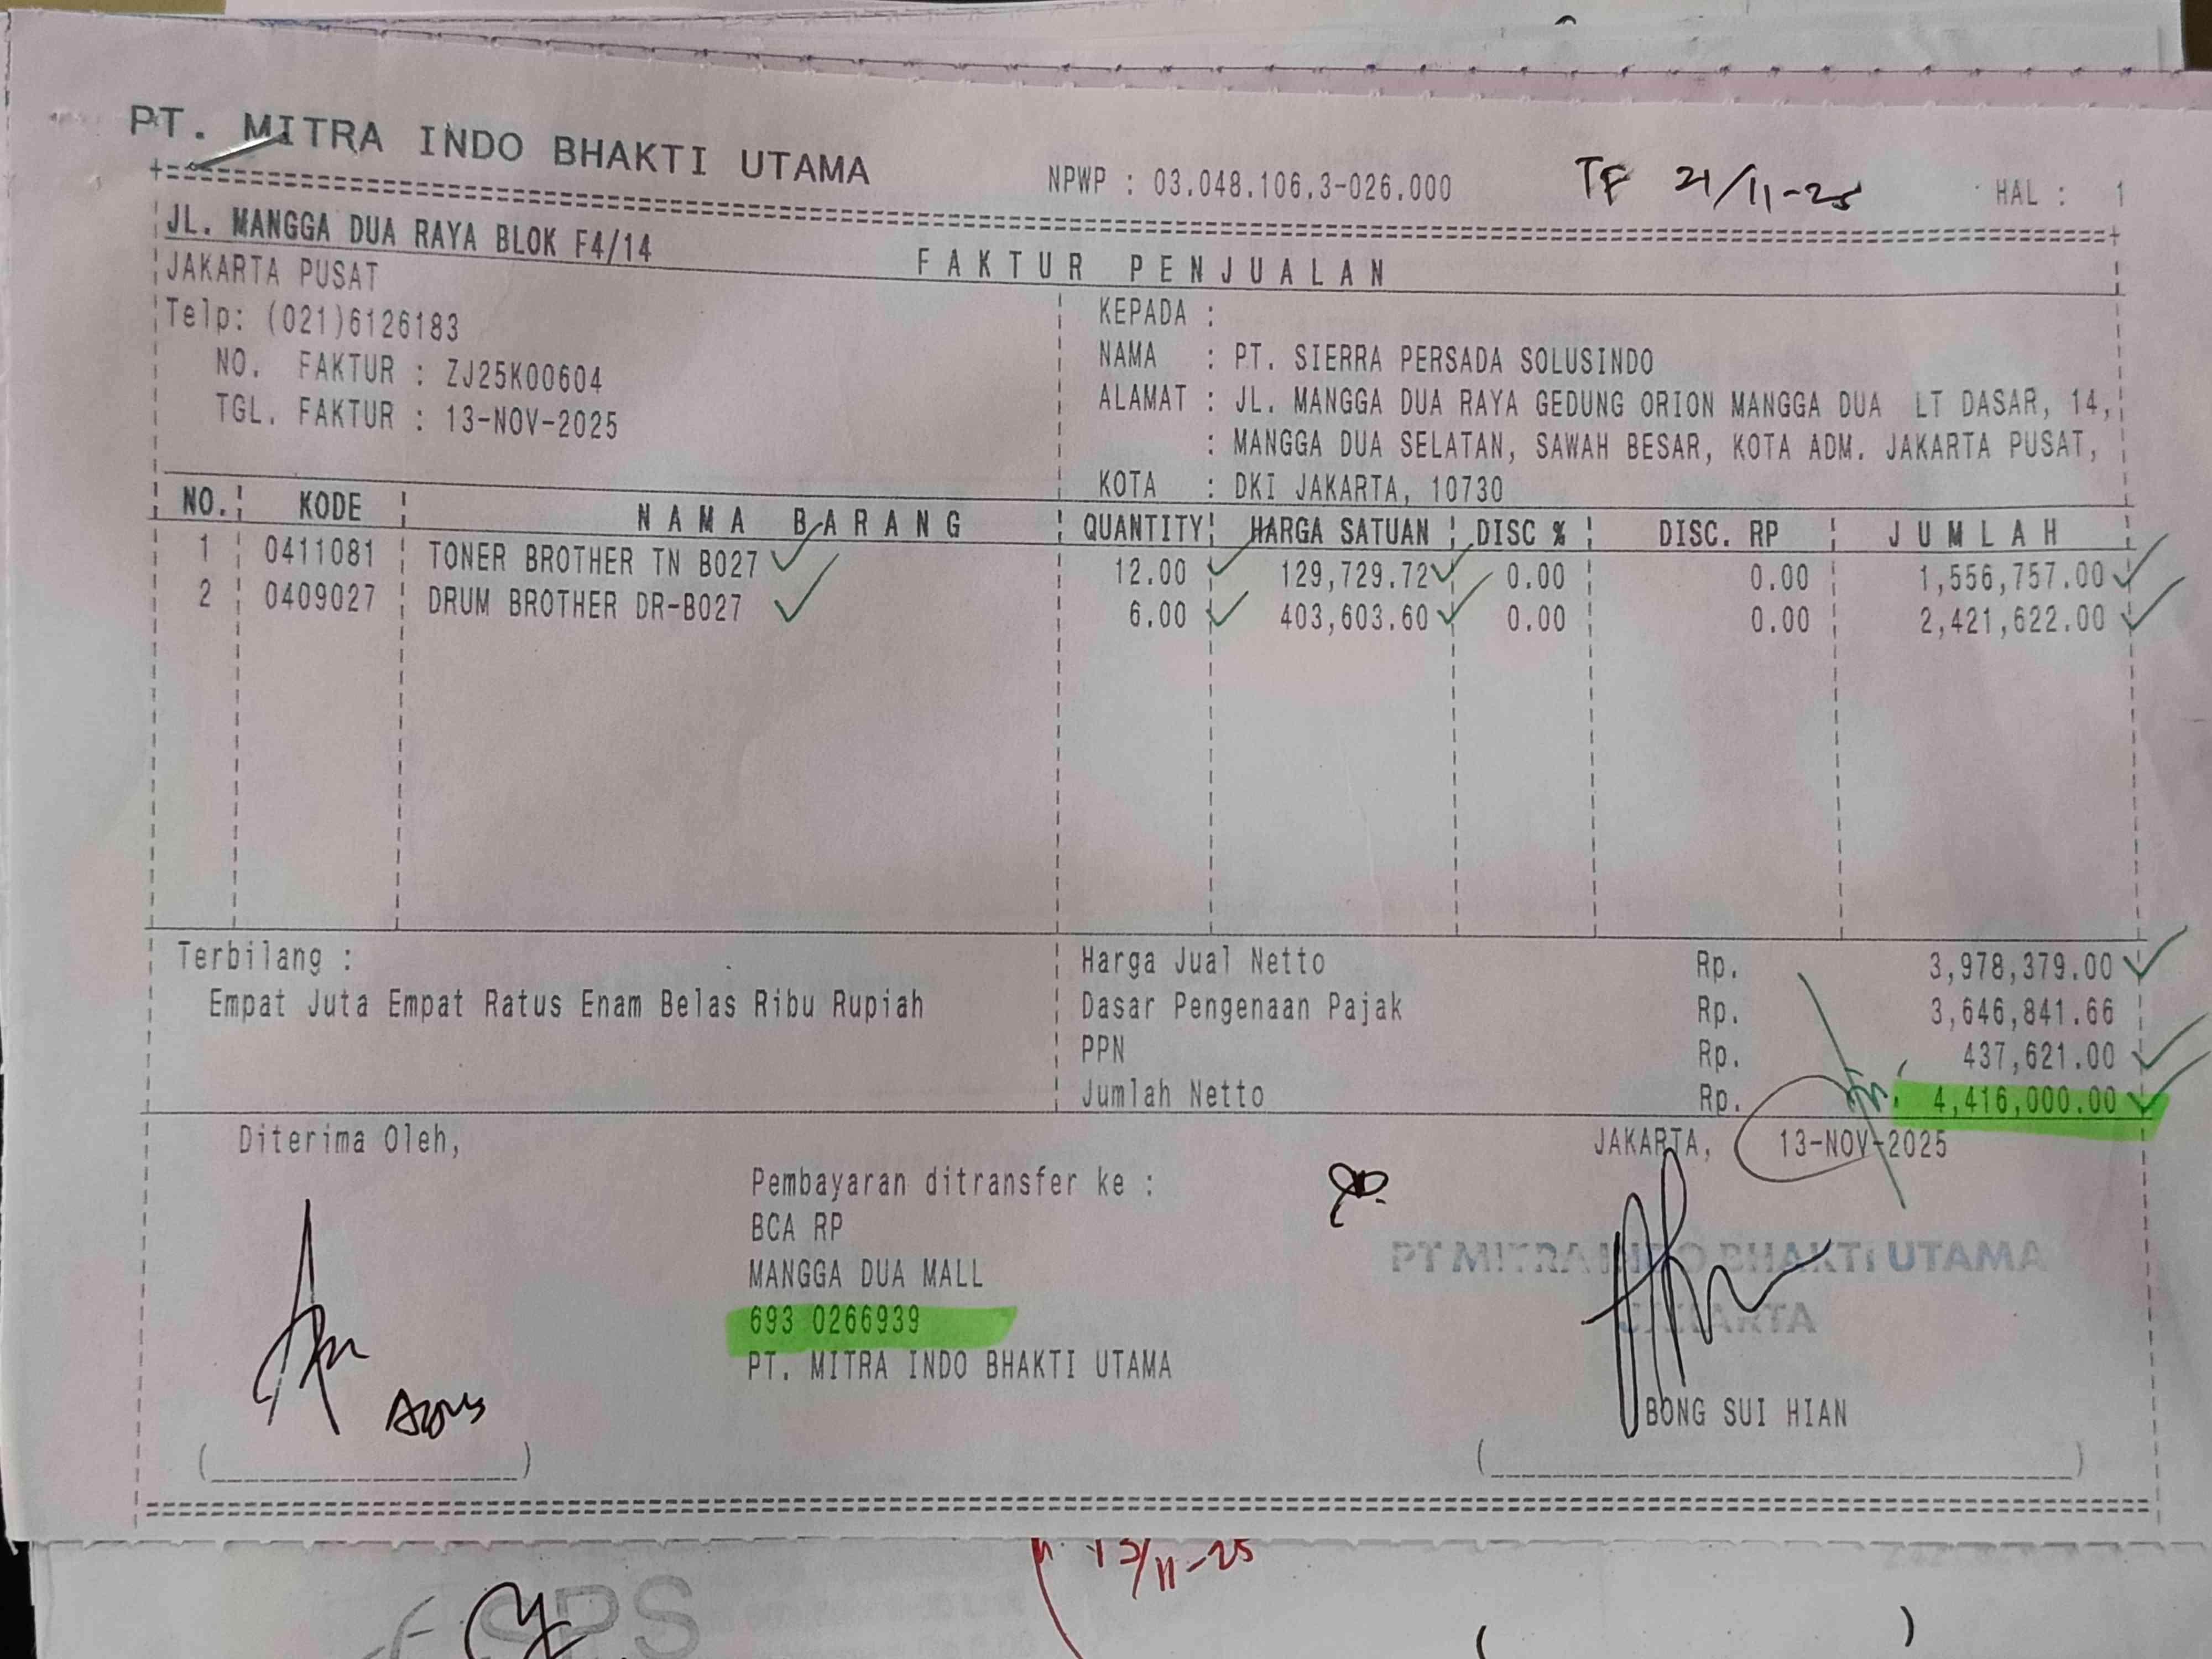 PT. MITRA INDO BHAKTI UTAMA
NPWP : 03.048.106.3-026.000
TF 21/11-25
HAL : 1
JL. MANGGA DUA RAYA BLOK F4/14
JAKARTA PUSAT
Telp: (021)6126183
NO. FAKTUR : ZJ25K00604
TGL. FAKTUR : 13-NOV-2025
FAKTUR PENJUALAN
KEPADA :
NAMA : PT. SIERRA PERSADA SOLUSINDO
ALAMAT : JL. MANGGA DUA RAYA GEDUNG ORION MANGGA DUA LT DASAR, 14,
: MANGGA DUA SELATAN, SAWAH BESAR, KOTA ADM. JAKARTA PUSAT,
KOTA : DKI JAKARTA, 10730
NO. KODE NAMA BARANG QUANTITY HARGA SATUAN DISC % DISC. RP JUMLAH
1 0411081 TONER BROTHER TN B027 12.00 129,729.72 0.00 0.00 1,556,757.00
2 0409027 DRUM BROTHER DR-B027 6.00 403,603.60 0.00 0.00 2,421,622.00
Terbilang :
Empat Juta Empat Ratus Enam Belas Ribu Rupiah
Harga Jual Netto Rp. 3,978,379.00
Dasar Pengenaan Pajak Rp. 3,646,841.66
PPN Rp. 437,621.00
Jumlah Netto Rp. 4,416,000.00
Diterima Oleh,
Pembayaran ditransfer ke :
BCA RP
MANGGA DUA MALL
693 0266939
PT. MITRA INDO BHAKTI UTAMA
JAKARTA, 13-NOV-2025
PT MITRA INDO BHAKTI UTAMA
JAKARTA
BONG SUI HIAN
SPS